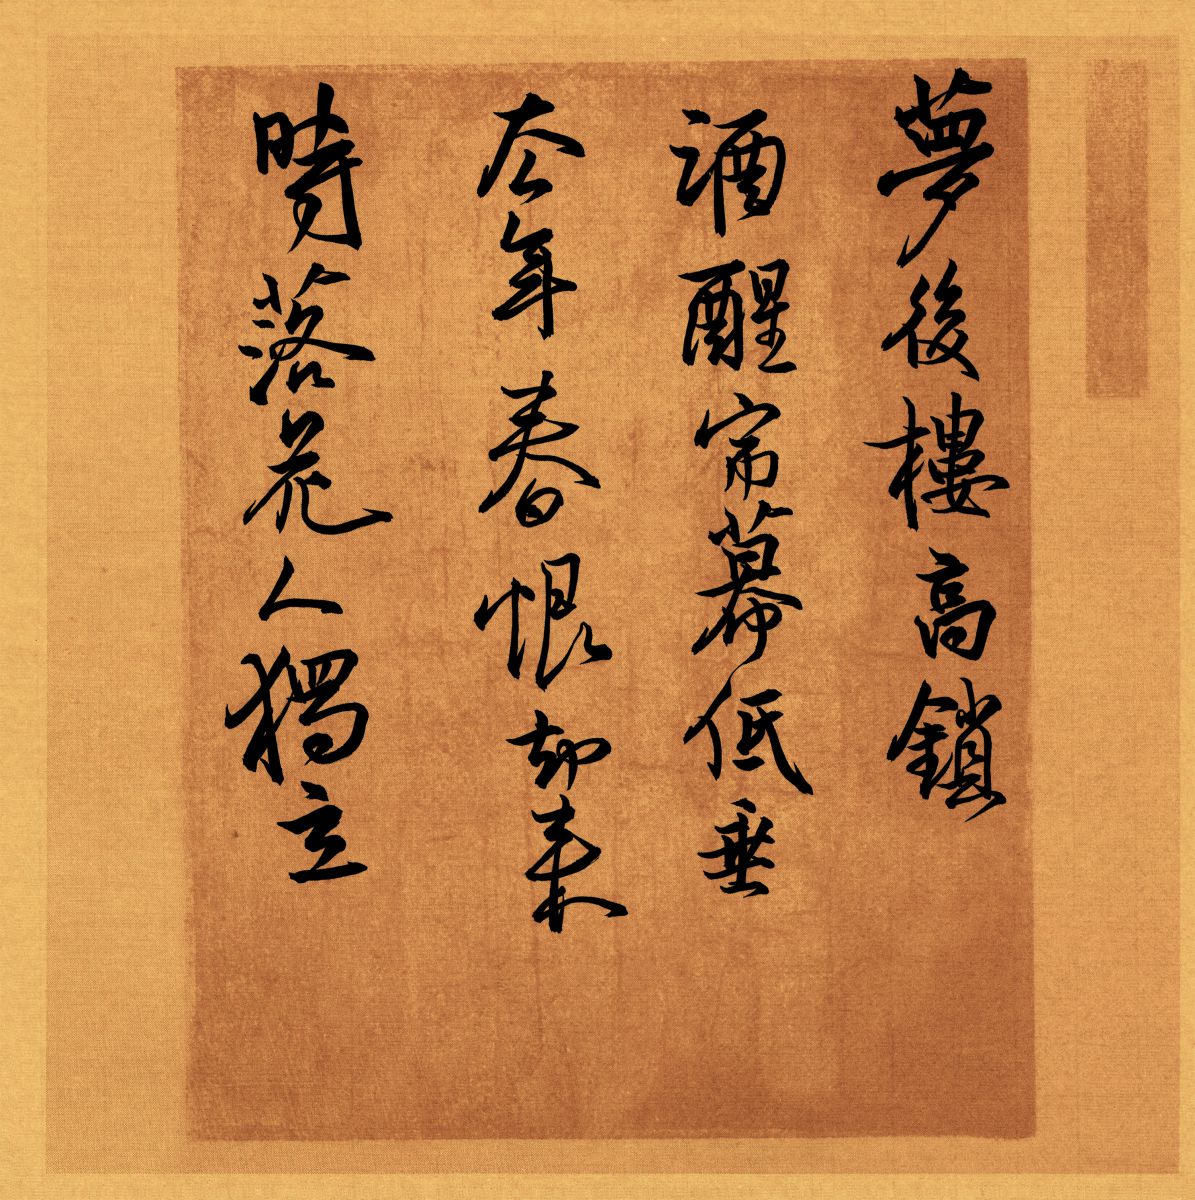 夢後樓高鎖
酒醒帘幕低垂
去年春恨却來
時落花人獨立